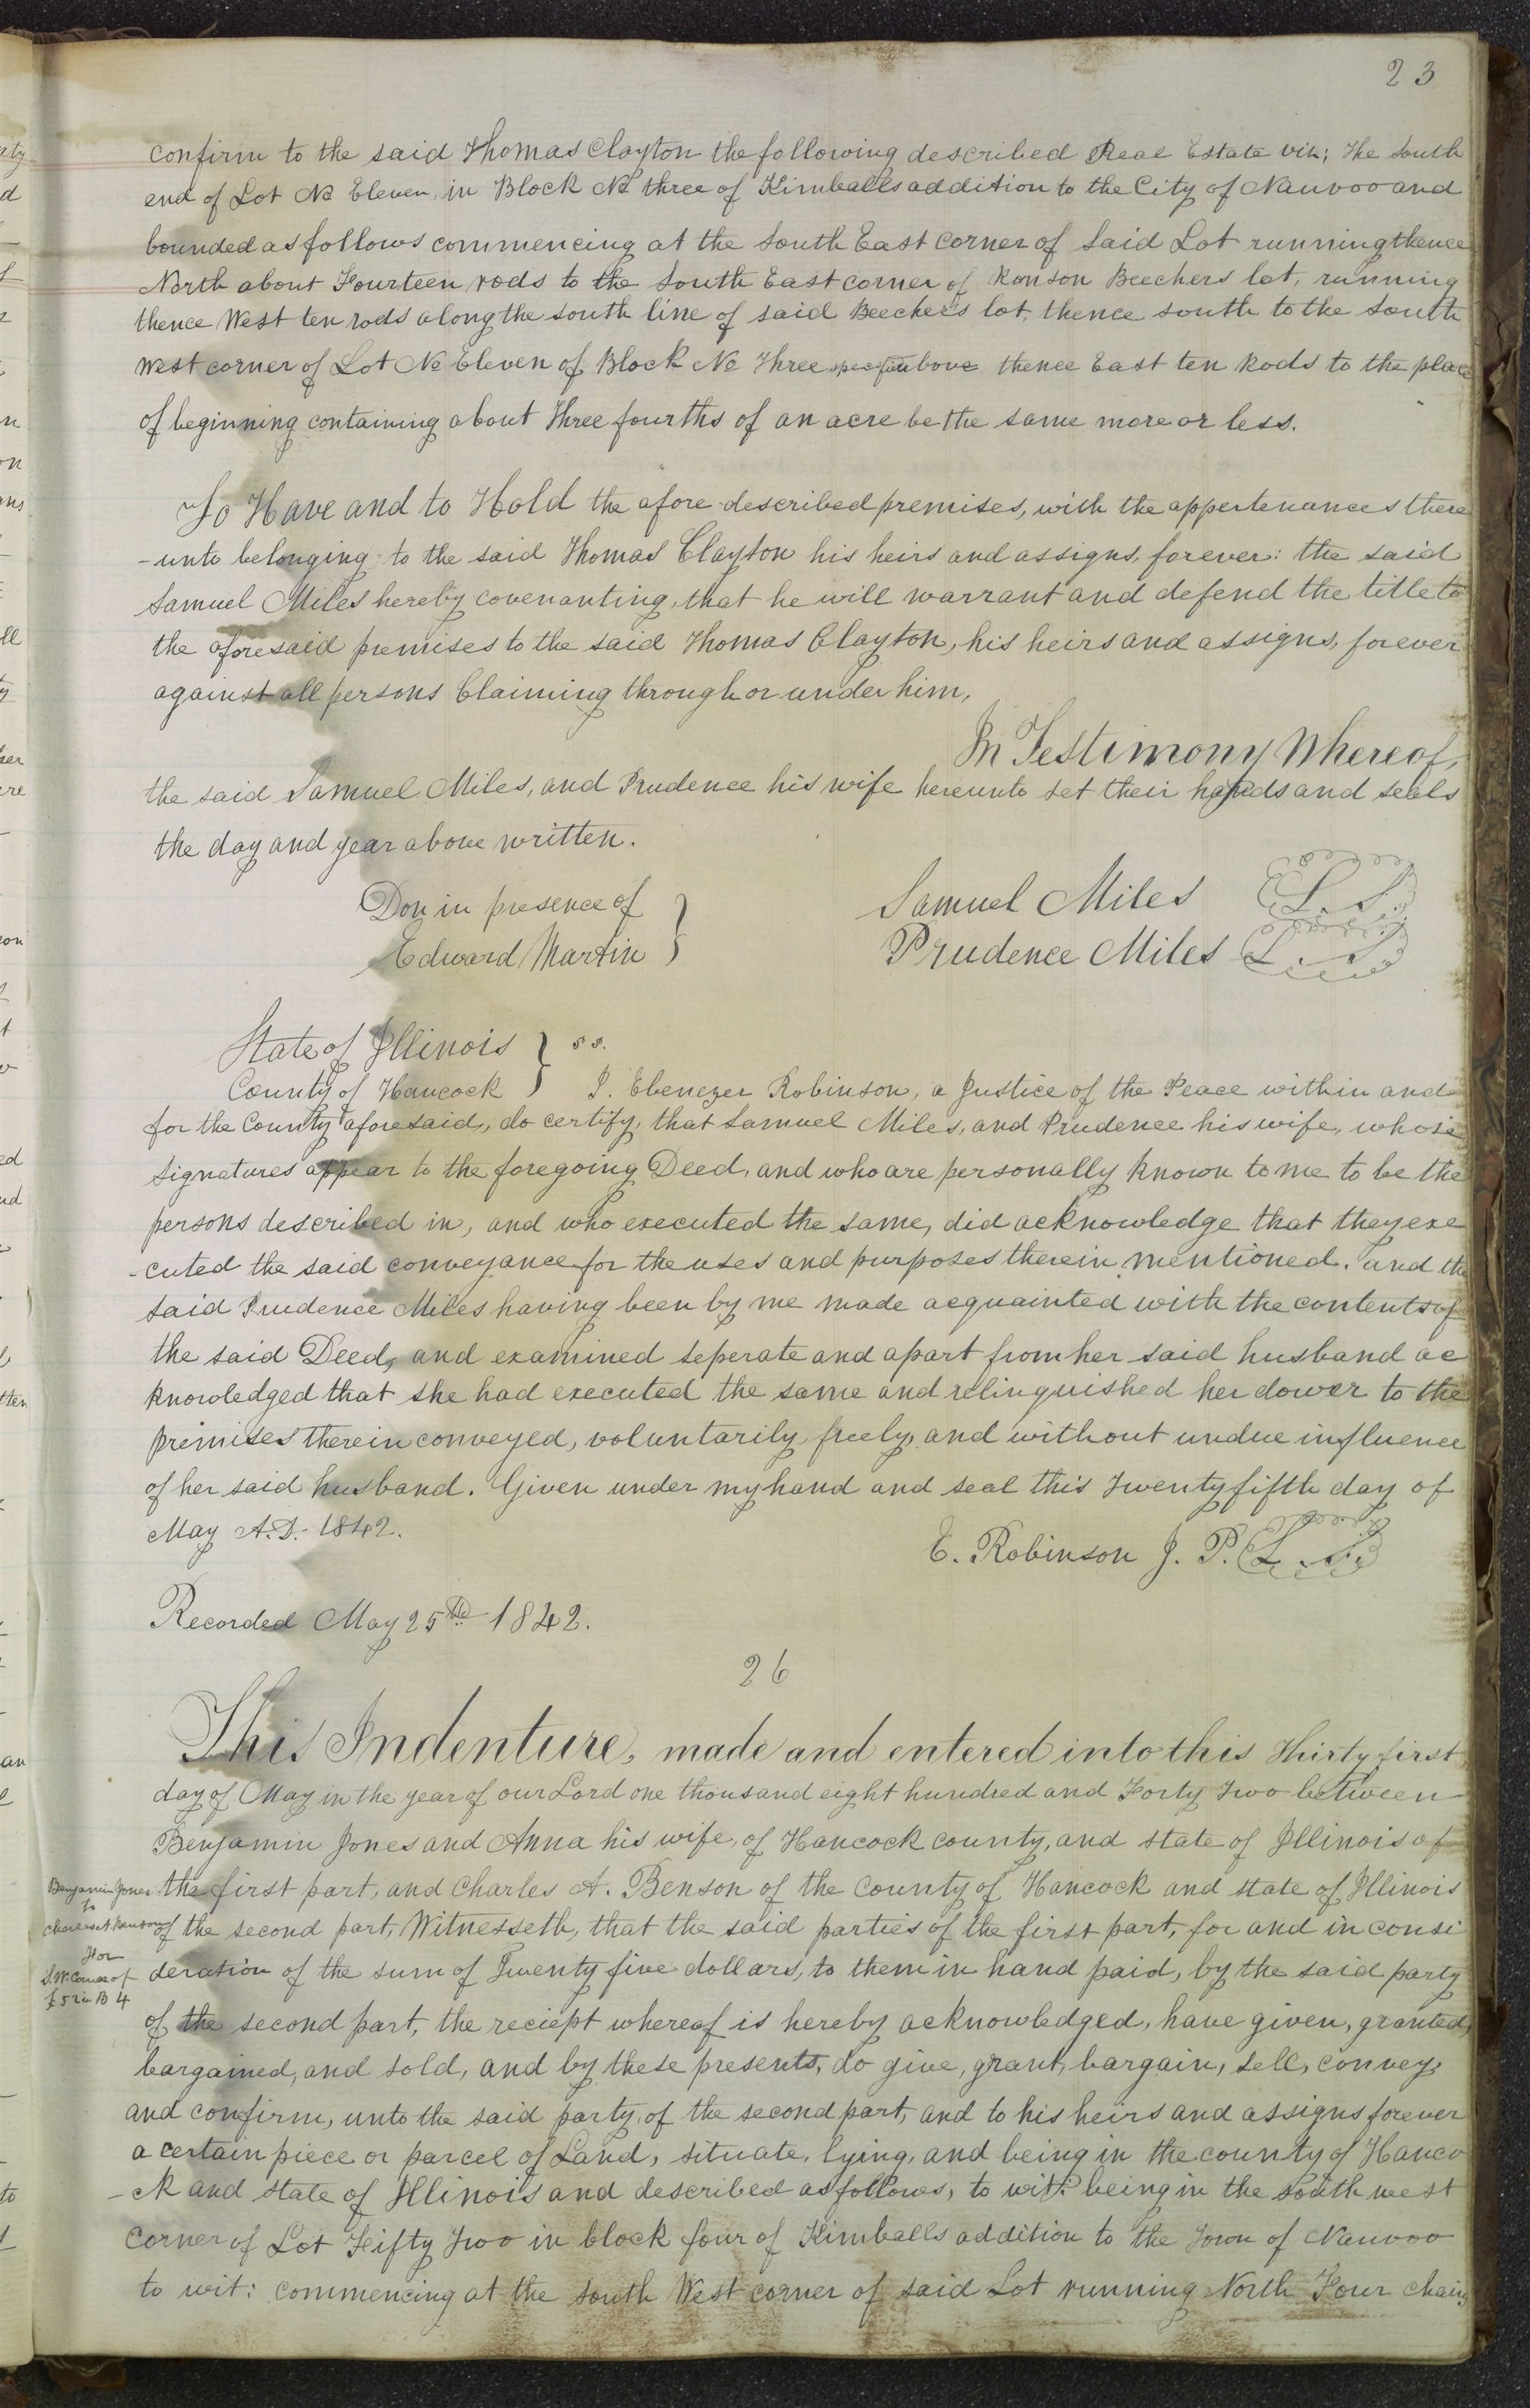 23
confirm to the said Thomas Clayton the following described Real Estate viz; The South
end of Lot No Eleven, in Block No three of Kimballs addition to the City of Nauvoo and
bounded as follows commencing at the South East corner of Said Lot running thence
North about Fourteen rods to the South East corner of Ranson Beechers lot, running
thence West ten rods along the south line of said Beechers lot, thence south to the South
West corner of Lot No Eleven of Block No Three above thence East ten Rods to the place
of beginning containing about Three fourths of an acre be the same more or less.
To Have and to Hold the afore described premises, with the appertenances there
-unto belonging to the said Thomas Clayton his heirs and assigns, forever: the said
Samuel Miles hereby covenanting, that he will warrant and defend the title to
the aforesaid premises to the said Thomas Clayton, his heirs and assigns, forever
against all persons Claiming through or under him,
In Testimony Whereof,
the said Samuel Miles, and Prudence his wife hereunto set their hands and seals
the day and year above written.
Don in presence of
Edward Martin
Samuel Miles L. S.
Prudence Miles L. S.
State of Illinois } s s.
County of Hancock } I. Ebenezer Robinson, a Justice of the Peace within and
for the County aforesaid, do certify, that Samuel Miles, and Prudence his wife, whose
signatures appear to the foregoing Deed, and who are personally known to me to be the
persons described in, and who executed the same, did acknowledge that they exe
-cuted the said conveyance for the uses and purposes therein mentioned. and the
said Prudence Miles having been by me made acquainted with the contents of
the said Deed, and examined seperate and apart from her said husband ac
knowledged that she had executed the same and relinquished her dower to the
premises therein conveyed, voluntarily, freely, and without undue influence
of her said husband. Given under my hand and seal this Twenty fifth day of
May A.D. 1842.
E. Robinson J. P. L. S.
Recorded May 25th 1842.
26
This Indenture, made and entered into this Thirty first
day of May in the year of our Lord one thousand eight hundred and Forty Two between
Benjamin Jones and Anna his wife, of Hancock county, and state of Illinois of
the first part, and Charles A. Benson of the County of Hancock and state of Illinois
of the second part, Witnesseth, that the said parties of the first part, for and in consi
deration of the sum of Twenty five dollars, to them in hand paid, by the said party
Benjamin Jones
to
Charles A Benson
for
S.W. Corner of
L 52 in B 4
of the second part, the reciept whereof is hereby acknowledged, have given, granted,
bargained, and sold, and by these presents, do give, grant, bargain, sell, convey,
and confirm, unto the said party, of the second part, and to his heirs and assigns forever
a certain piece or parcel of Land, situate, lying, and being in the county of Hanco
-ck and state of Illinois and described as follows, to wit: being in the south west
corner of Lot Fifty Two in block four of Kimballs addition to the Town of Nauvoo
to wit: commencing at the South West corner of said Lot running North Four chains